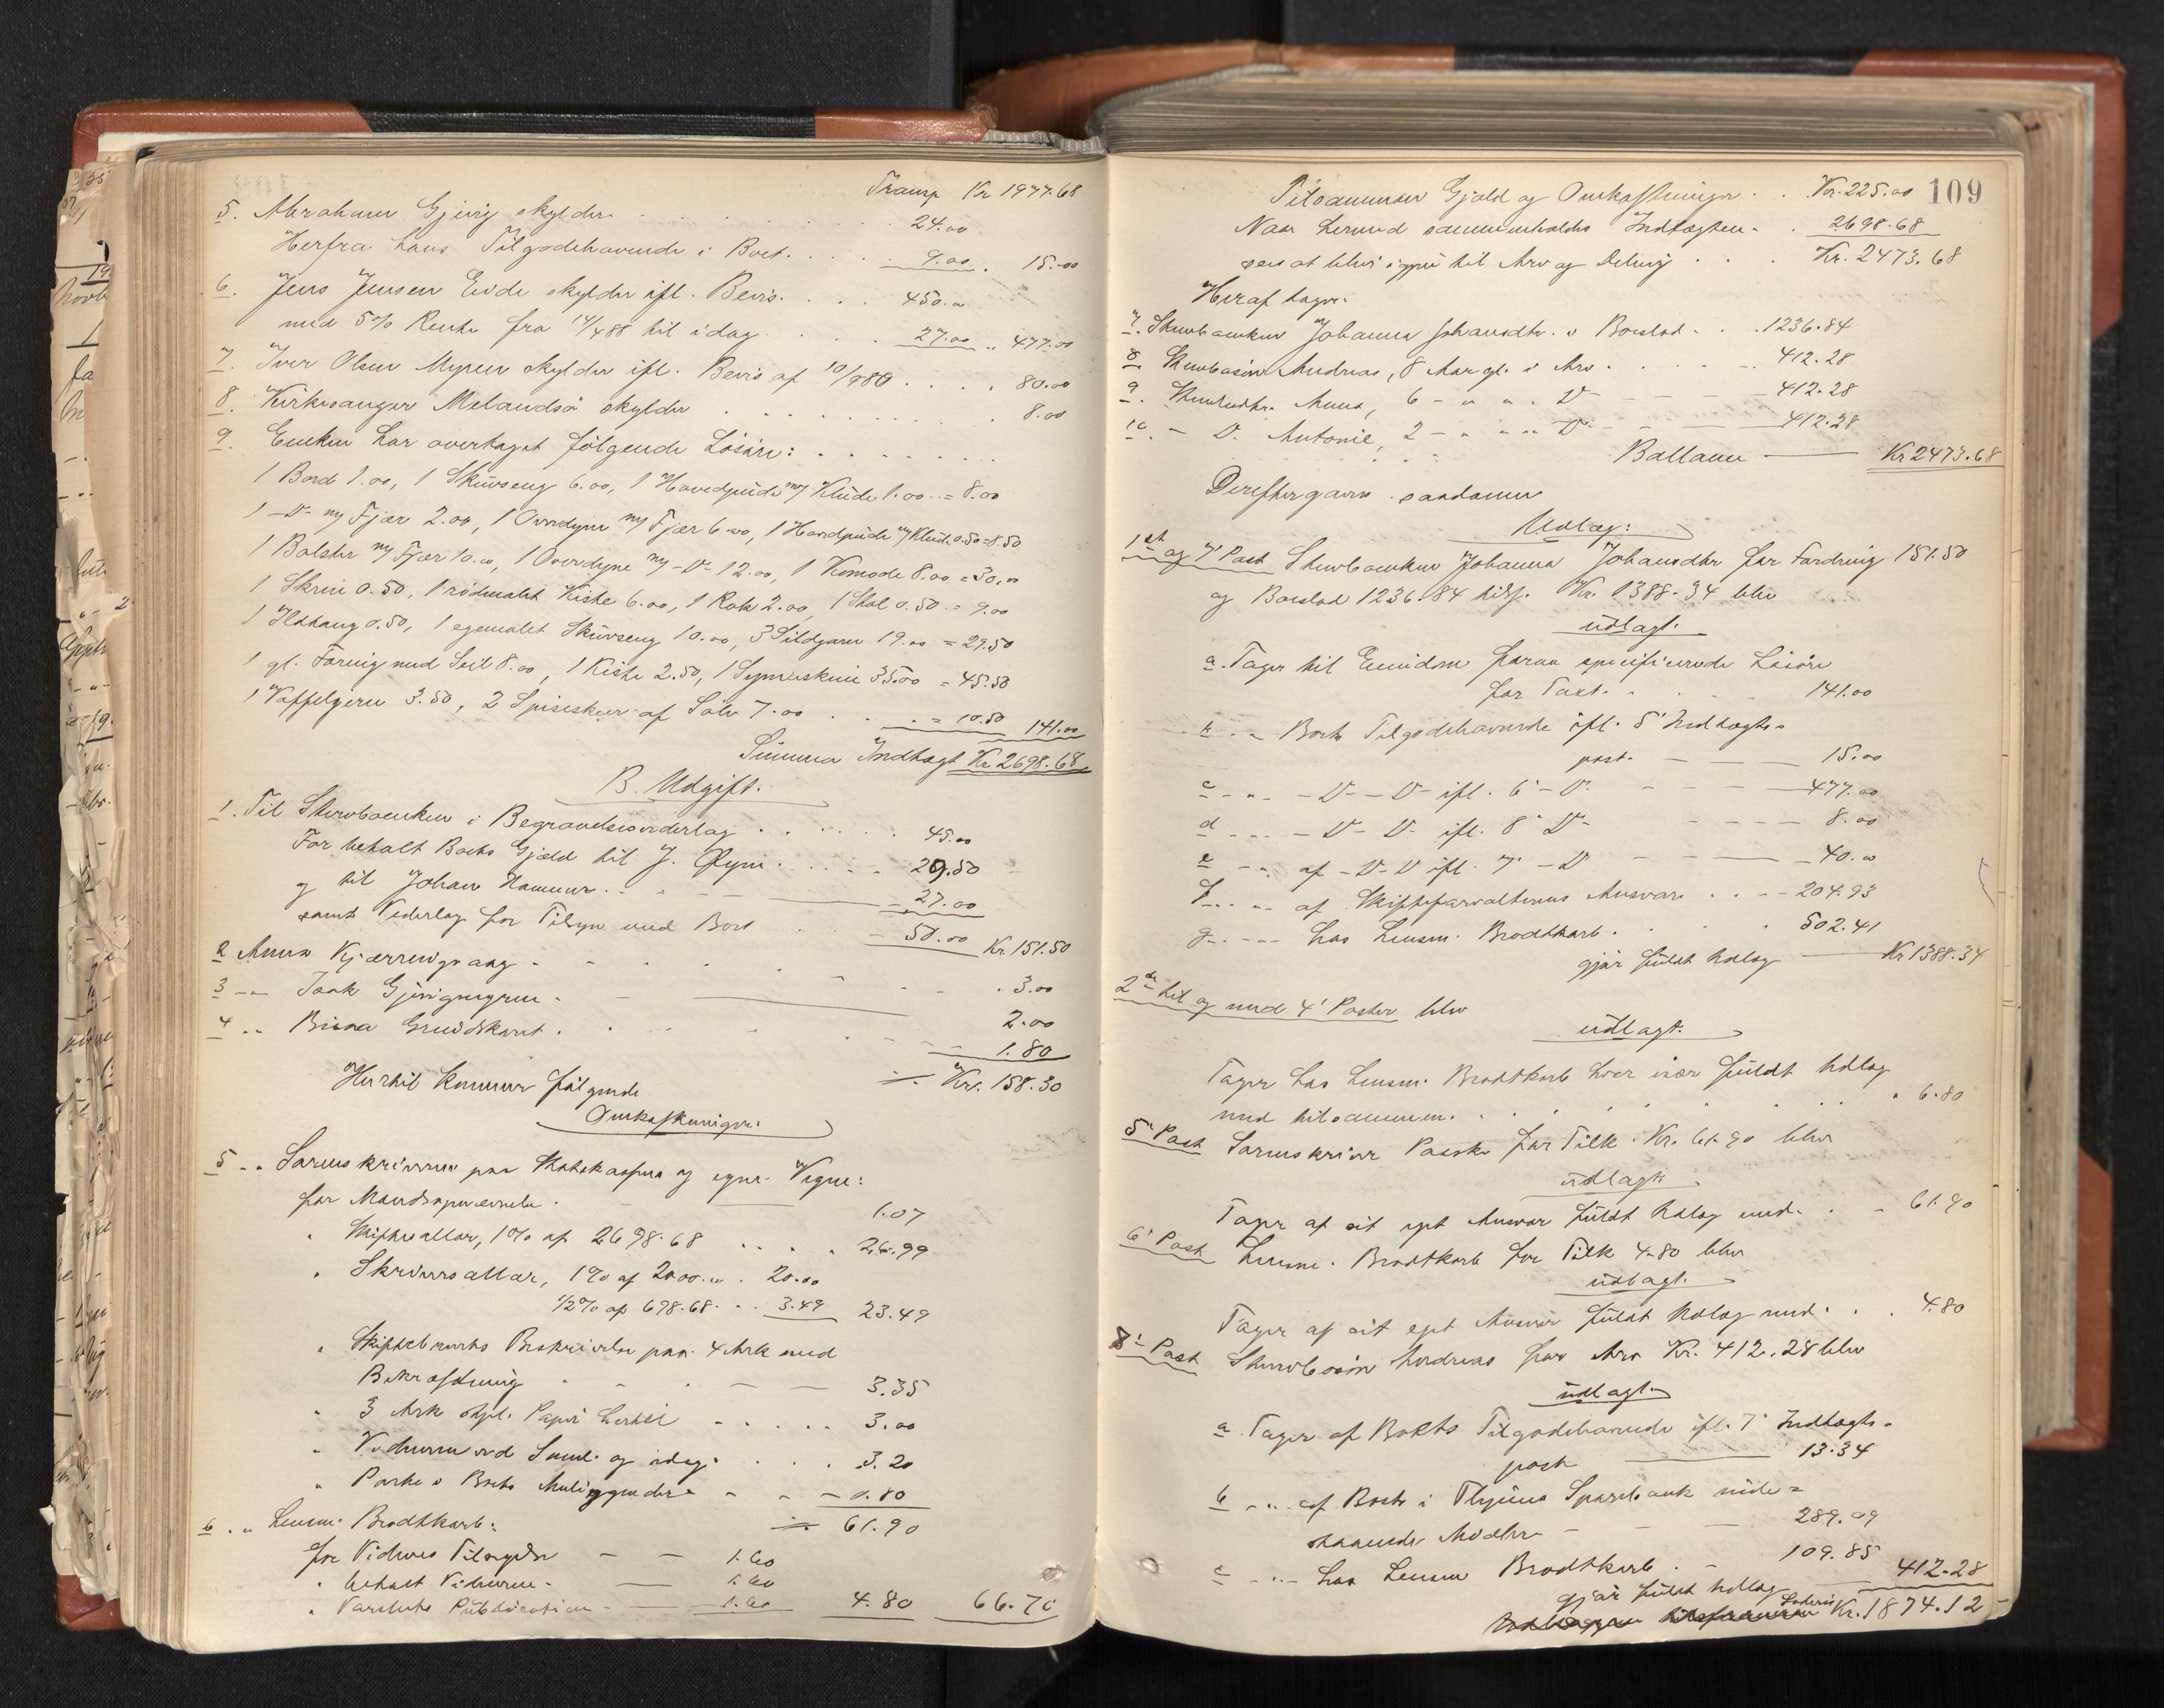 Transp Kr 1977.68
5. Abraham Gjevig skylder 24.00
Herfra hans Tilgodehavende i Boet 9.00 15.00
6. Jens Jensen Eide skylder ifl. Bevis 450.00
med 5% Rente fra 14/4 88 til idag 27.00 477.00
7. Iver Olsen Myren skylder ifl. Bevis af 10/9 80 80.00
8. Kirkesanger Melandsø skylder 8.00
9. Enken har overtaget følgende Løsøre:
1 Bord 1.00, 1 Skuvseng 6.00, 1 Hovedpude m/ Klude 1.00 = 8.00
1 -D- m/ Fjær 2.00, 1 Overdyne m/ Fjær 6.00, 1 Hovedpude m/ Klude 0.50 = 8.50
1 Bolster m/ Fjær 10.00, 1 Overdyne m/ -D- 12.00, 1 Komode 8.00 = 30.00
1 Skrin 0.50, 1 rødmalet Kiste 6.00, 1 Rok 2.00, 1 Stol 0.50 = 9.00
1 Ildtang 0.50, 1 egemalet Skuvseng 10.00, 3 Sildgarn 19.00 = 29.50
1 gl. Færing med Seil 8.00, 1 Kiste 2.50, 1 Symaskine 35.00 = 45.50
1 Vaffeljern 3.50, 2 Spiseskeer af Sølv 7.00 = 10.50 141.00
Summa Indtægt Kr 2698.68
B. Udgift.
1. Til Stervboenken i Begravelsesvederlag 45.00
For betalt Boets Gjæld til J. Øyen 29.50
og til Johan Hammer 27.00
samt Vederlag for Tilsyn med Boet 50.00 Kr. 151.50
2 Anna Kjærrengvaag 3.00
3 -"- Isak Gjevigmyren 2.00
4 " Grindskaret 1.80
Kr. 158.30
Hertil kommer følgende
Omkostninger:
5 " Sorenskriveren paa Statskassens og egne Vegne:
for 1.07
" Skifteallar, 1% af 2698.68 26.99
" Skriversallar, 1% af 2000.00 20.00
1/2% af 698.68 3.49 23.49
" Skiftebrevets Beskrivelse paa 4 Ark med
Bekræftning 3.35
" 3 Ark stpl. Papir hertil 3.00
" Vidnerne ved Saml. og idag 3.20
" Porto i Boets Anliggender 0.80
61.90
6 " Lensm. Brodtkorb:
for Vidnes Tilsigelse 1.60
" betalt Vidnerne 1.60
" Varslets Publication 1.60 4.80 66.70
109
Tilsammen Gjæld og Omkostninger Kr. 225.00
Naar hermed sammenholdes Indtægten 2698.68
sees at blive igjen til Arv og Deling Kr. 2473.68
Heraf tager:
7. Stervboenken Johanna Johansdtr. i Boeslod 1236.84
8 Stervbosøn Andreas, 8 Aar gl. i Arv 412.28
9. Stervbdtr. Anna, 6 - " " " D 412.28
10. - D. Antonie, 2 - " " " D 412.28
Ballance Kr 2473.68
Derefter gøres saadanne
Udlæg:
1st og 7' Post Stervboenken Johanna Johansdtr for Fordring 151.50
og Boeslod 1236.84 tils. Kr. 1388.34 blev
udlagt:
a. Tager til Eiendom foran specificerede Løsøre
for Taxt 141.00
b. " Boets Tilgodehavende ifl. 5' Indtægts-
post. 15.00
c - " - D - D - ifl. 6' - D. 477.00
d - " - D - D - ifl. 8' D 8.00
e - " af - D - D ifl. 7' - D 40.00
f - " - af Skifteforvalterens Ansvar 204.93
g - " - hos Lensm. Brodtkorb 502.41
gjør fuldt Udlæg Kr 1388.34
2den til og med 4' Poster blev
udlagt:
Tager hos Lensm. Brodtkorb hver især fuldt Udlæg
med tilsammen 6.80
5' Post Sorenskriver Paaske for Tilk. Kr. 61.90 blev
udlagt:
Tager af sit eget Ansvar fuldt Udlæg med 61.90
6' Post Lensm. Brodtkorb for Tilk 4.80 blev
udlagt:
Tager af sit eget Ansvar fuldt Udlæg med 4.80
8' Post Stervbosøn Andreas for Arv Kr. 412.28 blev
udlagt:
a. Tager af Boets Tilgodehavende ifl. 7' Indtægts-
post 13.34
b - " af Boets i Sparebank inde-
staaende Midler 289.09
c - " hos Lensm Brodtkorb 109.85
gjør fuldt Udlæg 412.28
Kr. 1874.12